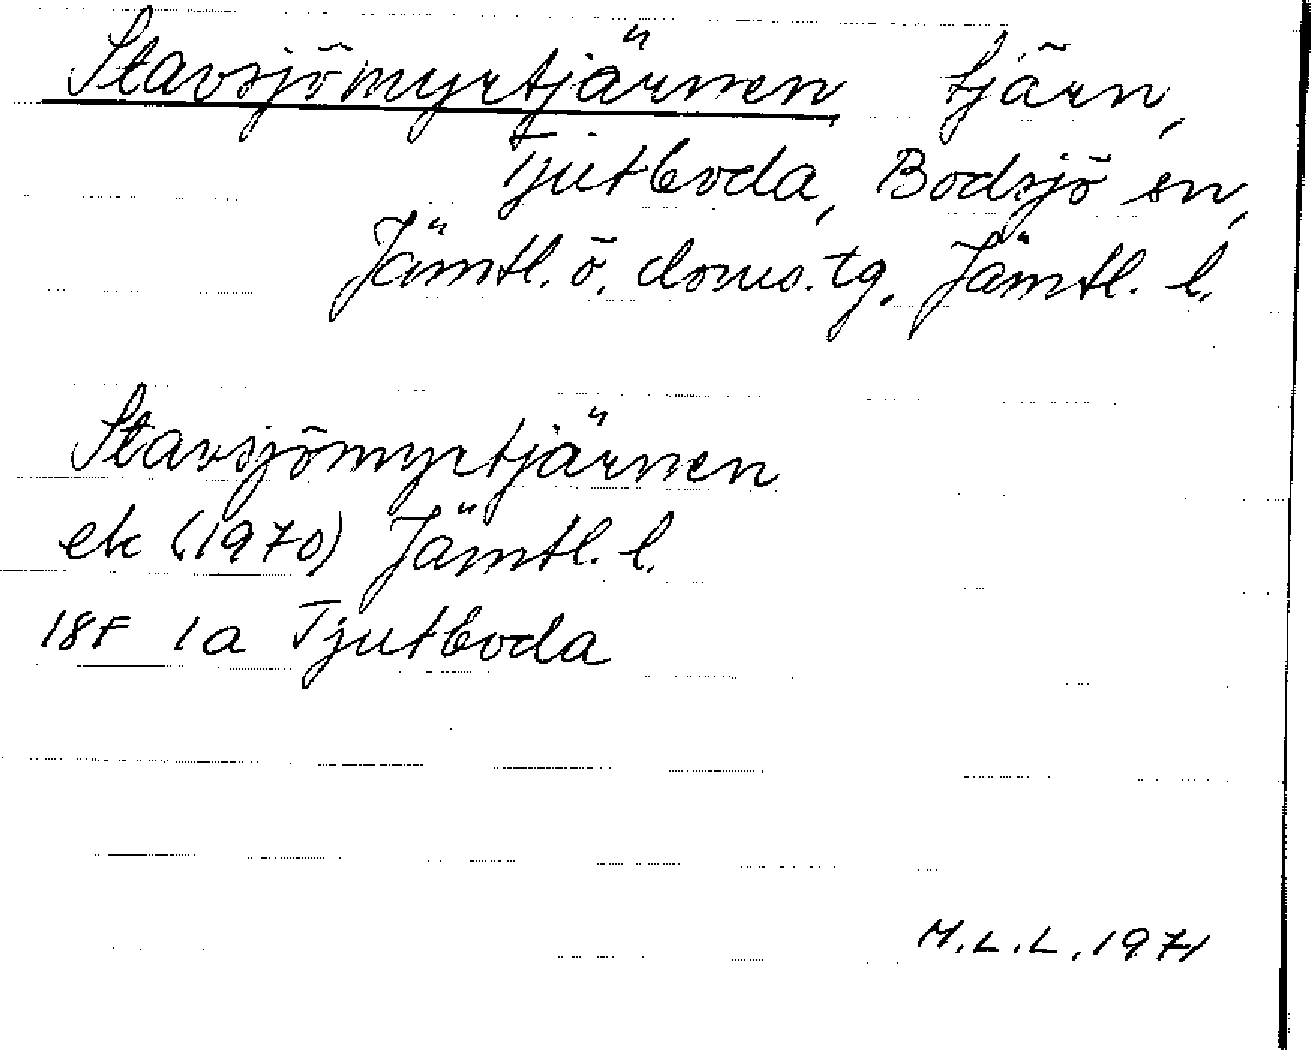 Stavsjömyrtjärnen tjärn,
Tjutboda, Bodsjö sn,
Jämtl. ö. doms. tg. Jämtl. l.
Stavsjömyrtjärnen
ek (1970) Jämtl. l.
18F 1a Tjutboda
M.L.L. 1971